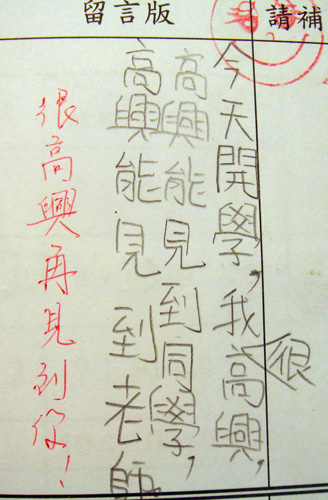 留言版
請補
今天開學，我很高興，
高興能見到同學，
高興能見到老師
很高興再見到你！